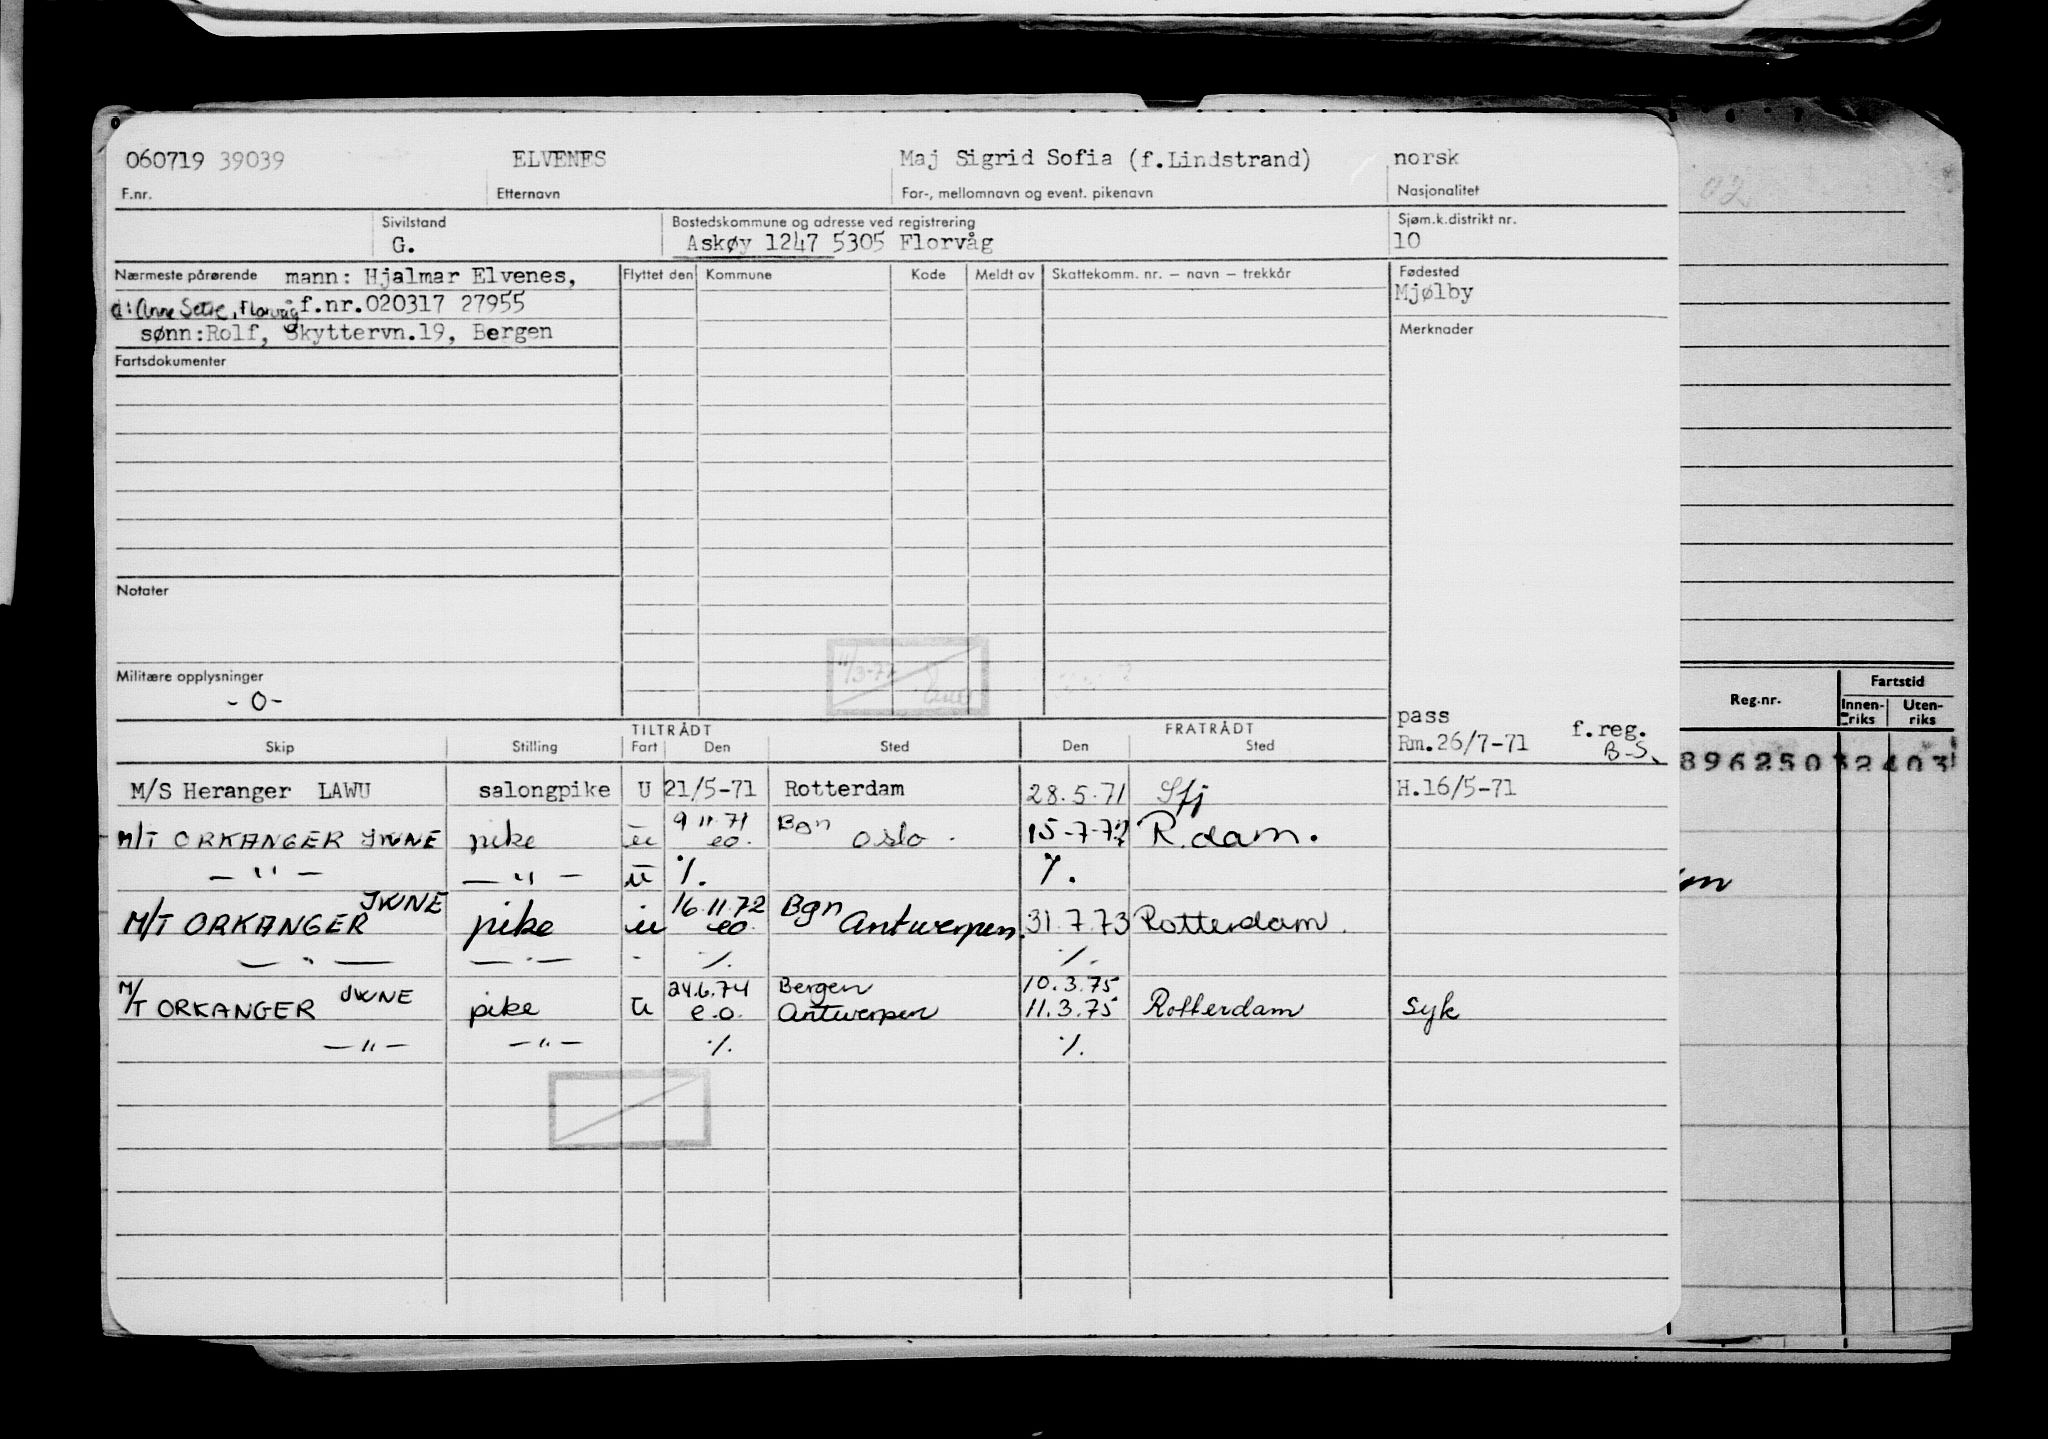 060719 39039 ELVENES Maj Sigrid Sofia (f.Lindstrand) norsk
F.nr. Etternavn For-, mellomnavn og event. pikenavn Nasjonalitet
Sivilstand Bostedskommune og adresse ved registrering Sjøm.k.distrikt nr.
G. Askøy 1247 5305 Florvåg 10
Nærmeste pårørende mann: Hjalmar Elvenes, Flyttet den Kommune Kode Meldt av Skattekomm. nr. – navn – trekkår Fødested
Mjølby
d: Anne Setre, Florvåg f.nr.020317 27955
sønn:Rolf, Skyttervn.19, Bergen Merknader
Fartsdokumenter
Notater
11/3-77
Militære opplysninger
-0-
Reg.nr. Fartstid
Innen-riks Uten-riks
pass f.reg.
TILTRÅDT FRATRÅDT
Skip Stilling Fart Den Sted Den Sted Rm.26/7-71 B-S.
89625032403
M/S Heranger LAWU salongpike U 21/5-71 Rotterdam 28.5.71 Sfj H.16/5-71
9 11 71 Bgn
M/T ORKANGER JWNE pike u eo. Oslo 15-7-72 R.dam.
— " — — " — u ٪. ٪.
JWNE 16.11.72 Bgn
M/T ORKANGER pike u eo. Antwerpen 31.7.73 Rotterdam.
— " — — " — - ٪. ٪.
24.6.74 Bergen 10.3.75
M/T ORKANGER JWNE pike u e.o. Antwerpen 11.3.75 Rotterdam syk
— " — — " — ٪. ٪.